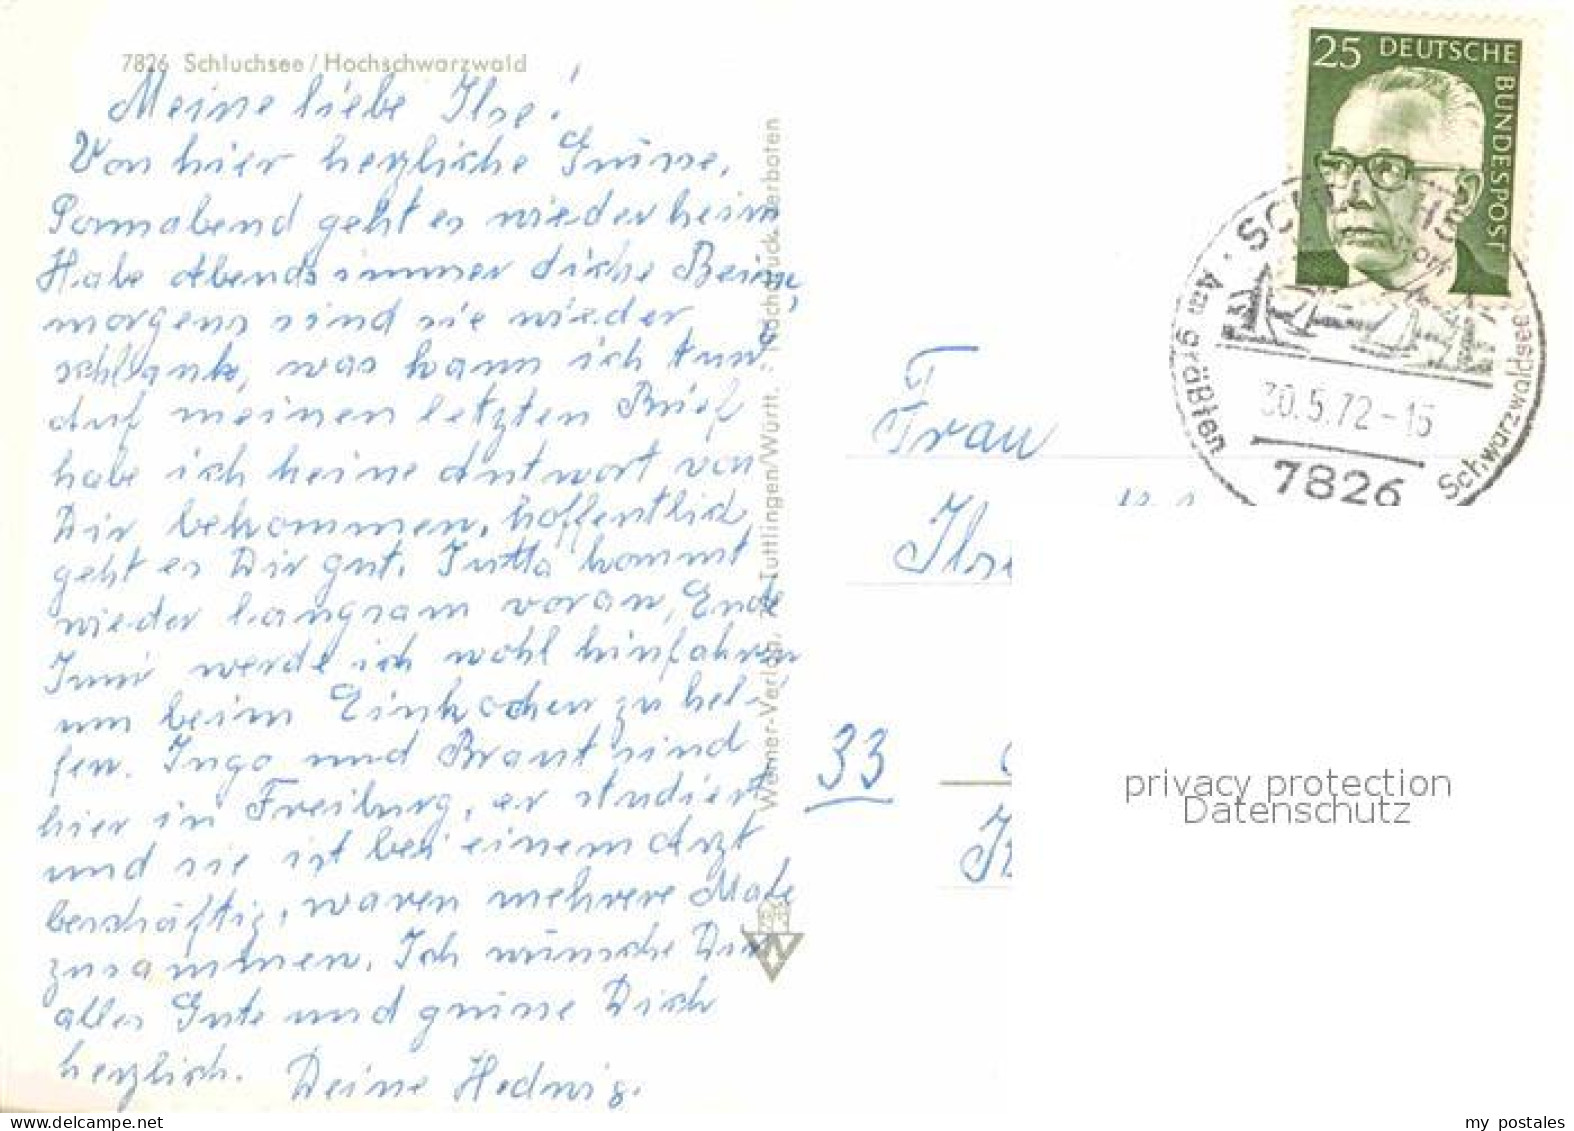 7826 Schluchsee/Hochschwarzwald
Meine liebe Ilse!
Von hier herzliche Grüsse,
Sonnabend geht es wieder heim
Habe Abends immer dicke Beine,
morgens sind sie wieder
schlank, was kann ich tun?
Auf meinen letzten Brief
habe ich keine Antwort von
Dir bekommen, hoffentlich
geht es Dir gut. Jutta kommt
wieder langsam voran, Ende
Juni werde ich wohl hinfahren
um beim Einkochen zu hel-
fen. Ingo und Braut sind
hier in Freiburg, er studiert
und sie ist bei einem Arzt
beschäftig, waren mehrere Male
zusammen. Ich wünsche Dir
alles Gute und grüsse Dich
herzlich. Deine Hedwig.
Werner-Verlag, Tuttlingen/Württ. · Nachdruck verboten
25 DEUTSCHE
BUNDESPOST
Am größten
Schwarzwaldsee
30.5.72-15
7826
Frau
Ilse
33
privacy protection
Datenschutz
my postales